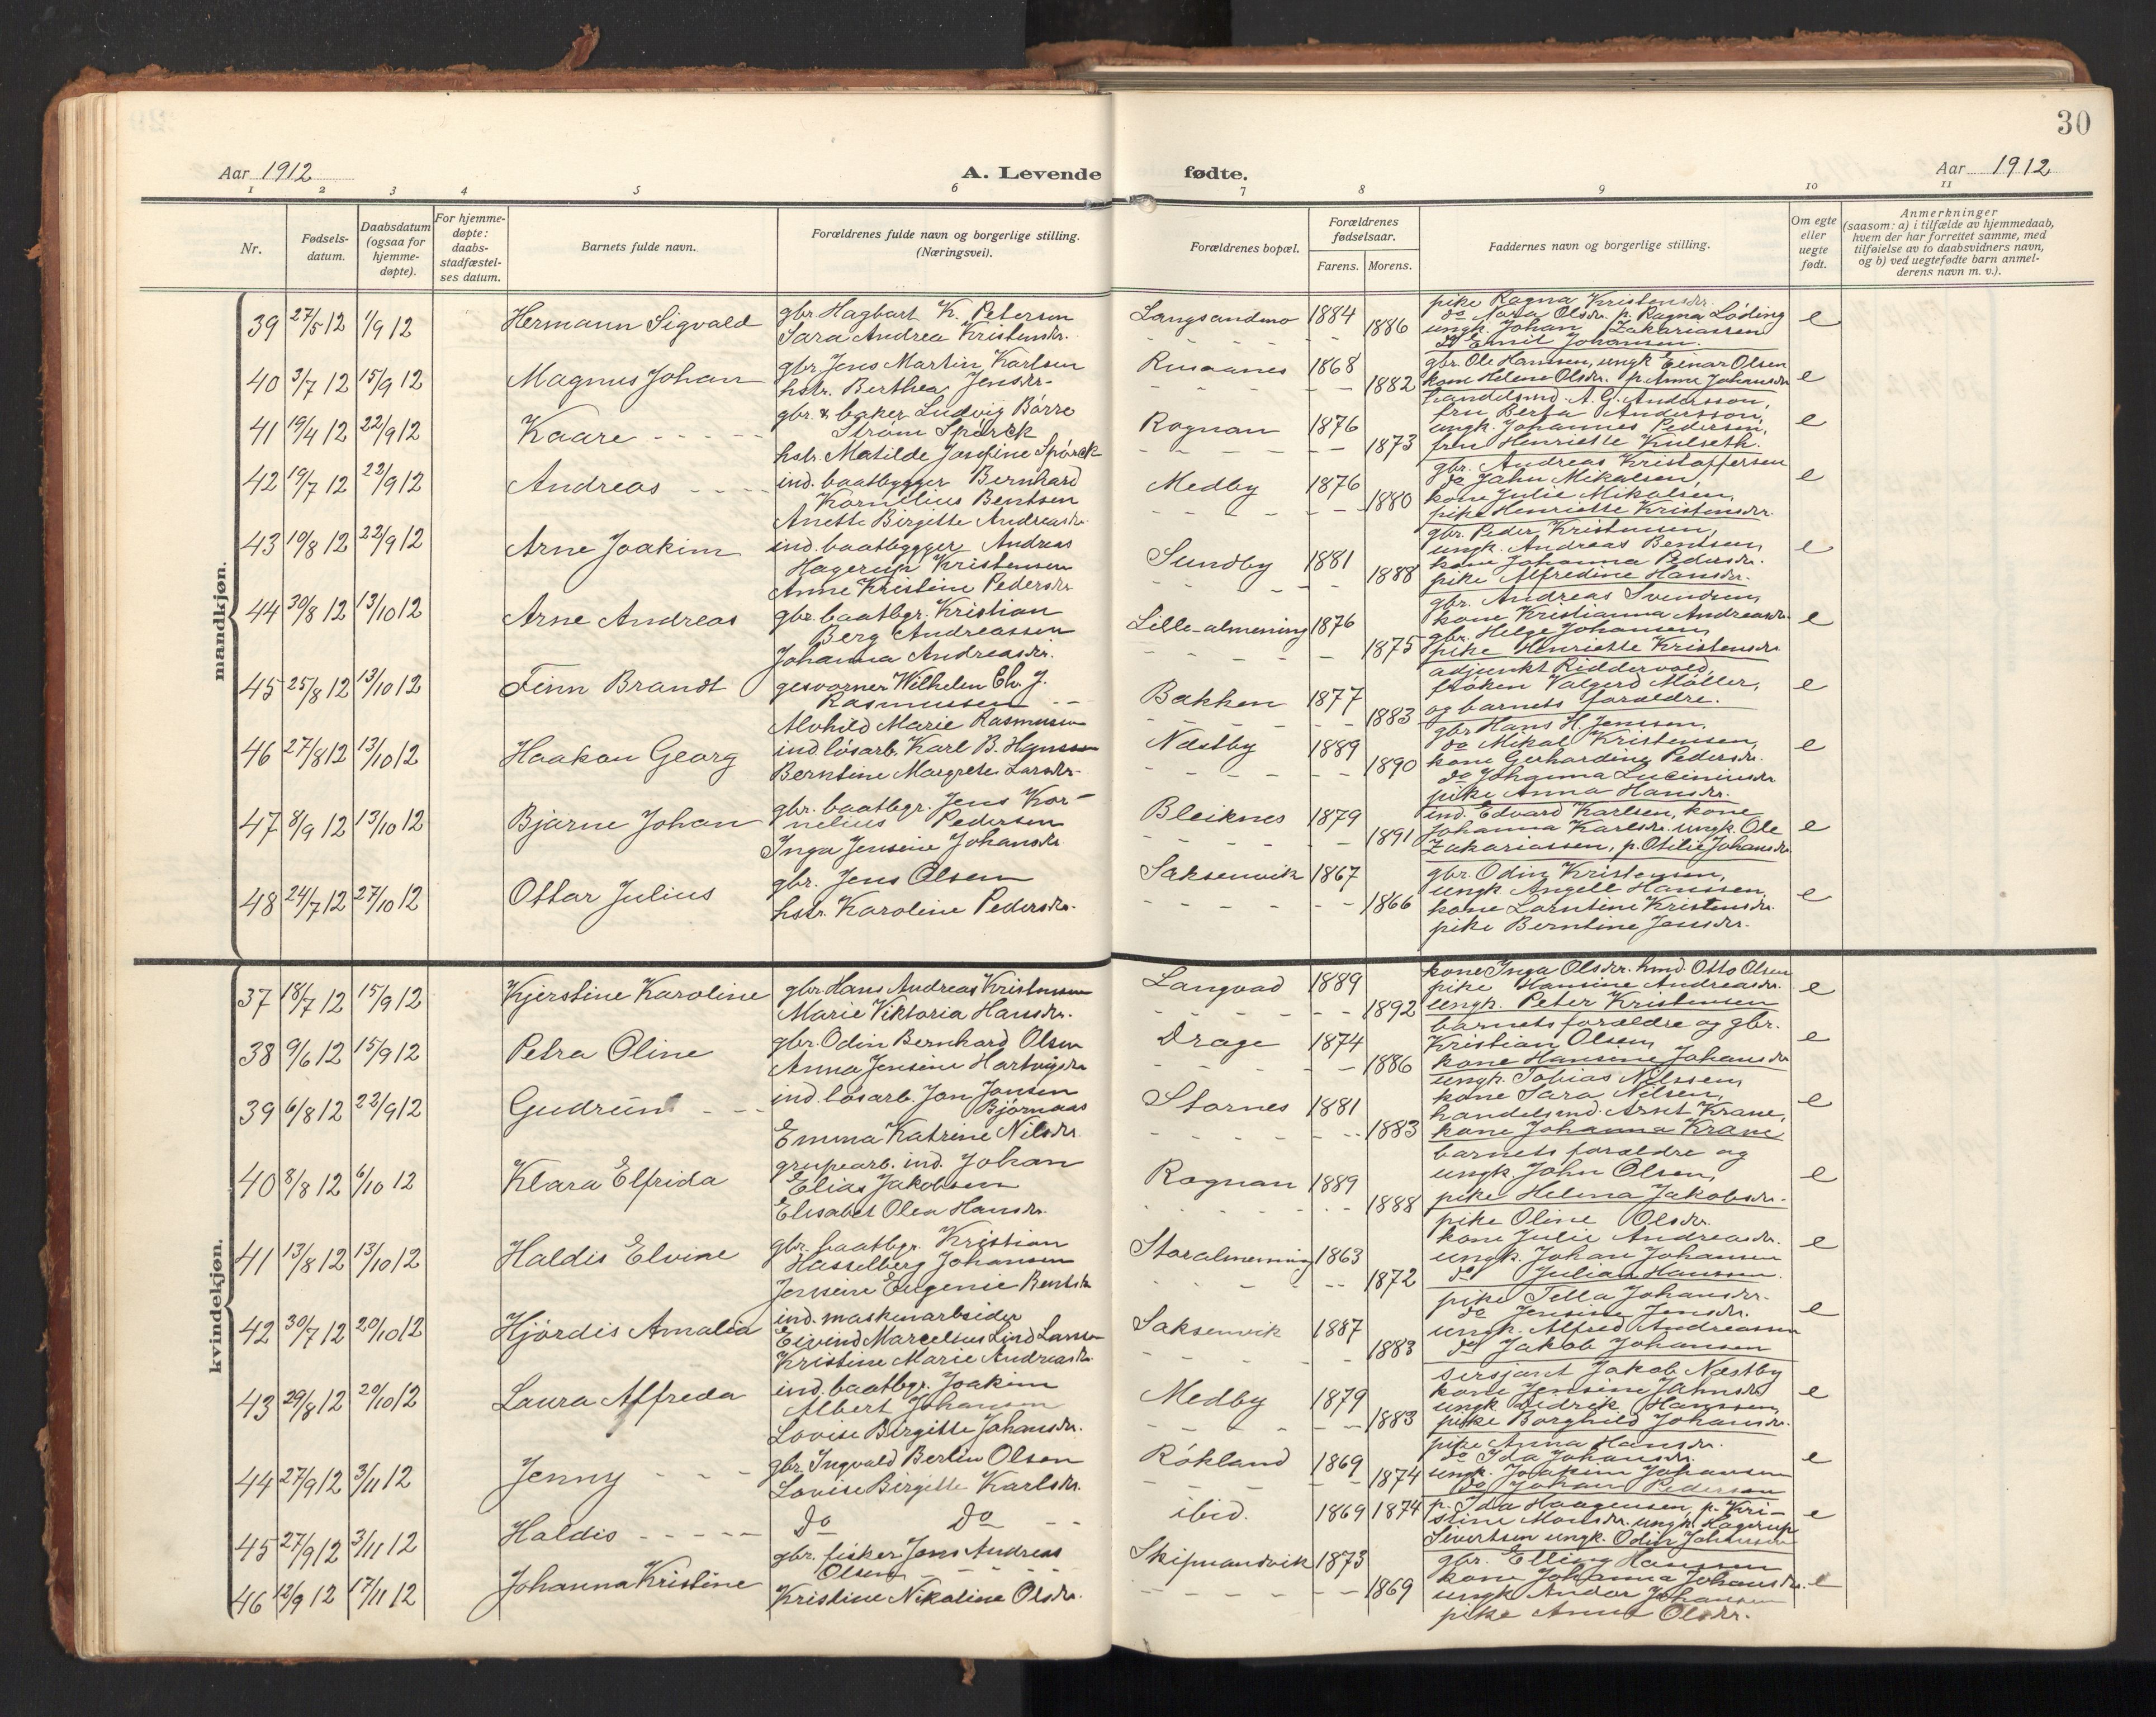 30
Aar 1912
A. Levende
fødte.
Aar 1912
1 2 3 4 5 6 7 8 9 10 11
Nr.
Fødsels-
datum.
Daabsdatum
(ogsaa for
hjemme-
døpte).
For hjemme-
døpte:
daabs-
stadfæstel-
ses datum.
Barnets fulde navn.
Forældrenes fulde navn og borgerlige stilling.
(Næringsvei).
Forældrenes bopæl.
Forældrenes
fødselsaar.
Farens. Morens.
Faddernes navn og borgerlige stilling.
Om egte
eller
uegte
født.
Anmerkninger
(saasom: a) i tilfælde av hjemmedaab,
hvem der har forrettet samme, med
tilføielse av to daabsvidners navn,
og b) ved uegtefødte barn anmel-
derens navn m. v.).
mandkjøn.
39 27/5 12 1/9 12 Hermann Sigvald
gbr. Hagbart K. Petersen
Sara Andrea Kristensdr.
Langsandmo 1884 1886
pike Ragna Kristensdr.
do Nora Olsdr. p. Ragna Løding
ungk. Johan Zakariassen
do Emil Johansen.
e
40 3/7 12 15/9 12 Magnus Johan
gbr. Jens Martin Karlsen
hstr. Berthea Jensdr.
Rusaanes 1868 1882
gbr. Ole Hansen, ungk Einar Olsen
kone Helene Olsdr. p. Anne Johansdr
e
41 19/4 12 22/9 12 Kaare
gbr. & baker Ludvig Børre
Strøm Spørck
hstr. Matilde Josefine Spørck
Rognan 1876 1873
handelsmd. A. G. Andersson,
fru Berta Andersson,
ungk. Johannes Pedersen,
fru Henriette Kulseth.
e
42 19/7 12 22/9 12 Andreas
ind. baatbygger Bernhard
Kornelius Bentsen
Anette Birgitte Andreasdr.
Medby 1876 1880
gbr. Andreas Kristoffersen
do Jahn Mikalsen,
kone Julie Mikalsen,
pike Henriette Kristensdr.
e
43 10/8 12 22/9 12 Arne Joakim
ind. baatbygger Andreas
Hagerup Kristensen
Anne Kristine Pedersdr
Sundby 1881 1888
gbr. Peder Kristensen,
ungk. Andreas Bentsen,
kone Johanna Pedersdr.
pike Alfredine Hansdr.
e
44 30/8 12 13/10 12 Arne Andreas
gbr. baatbgr. Kristian
Berg Andreassen
Johanna Andreasdr.
Lille-almening 1876 1875
gbr. Andreas Svendsen,
kone Kristianna Andreasdr.
gbr. Helge Johansen,
pike Henriette Kristensdr
e
45 25/8 12 13/10 12 Finn Brandt
gesvorner Wilhelm Chr. J.
Rasmussen
Alvhild Marie Rasmussen
Bakken 1877 1883
adjunkt Riddervold,
frøken Valgerd Møller,
og barnets forældre.
e
46 27/8 12 13/10 12 Haakon Georg
ind. løsarb. Karl B. Hansen
Berntine Margrete Larsdr.
Næstby 1889 1890
gbr. Hans H. Jensen,
do Mikal Kristensen,
kone Gerhardine Pedersdr.
do Johanna Luciniusdr
pike Anna Hansdr.
e
47 8/9 12 13/10 12 Bjarne Johan
gbr. baatbgr. Jens Kor-
nelius Pedersen
Inga Jensine Johansdr
Bleiknes 1879 1891
ind. Edvard Karlsen, kone
Johanna Karlsdr. ungk. Ole
Zakariassen, p. Otilie Johansdr.
e
48 24/7 12 27/10 12 Ottar Julius
gbr. Jens Olsen
hstr. Karoline Pedersdr.
Saksenvik 1867 1866
gbr. Odin Kristensen,
ungk Angell Hanssen,
kone Larntine Kristensdr.
pike Berntine Jensdr.
e
kvindekjøn.
37 18/7 12 15/9 12 Kjerstine Karoline
gbr. Hans Andreas Kristensen
Marie Viktoria Hansdr.
Langvad 1889 1892
kone Inga Olsdr. hmd. Otto Olsen
pike Hansine Andreasdr.
ungk. Peter Kristensen
e
38 9/6 12 15/9 12 Petra Oline
gbr. Odin Bernhard Olsen
Anna Jensine Hartvigsdr
Drage 1874 1886
barnets forældre og gbr.
Kristian Olsen,
kone Hansine Johansdr
e
39 6/8 12 22/9 12 Gudrun
ind. løsarb. Jon Jonsen
Bjørnaas
Emma Katrine Nilsdr.
Stornes 1881 1883
ungk. Tobias Nilssen,
kone Sara Nilsen,
handelsmd. Arnt Krane,
kone Johanna Krane
e
40 8/8 12 6/10 12 Klara Elfrida
grubearb. ind. Johan
Elias Jakobsen
Elisabet Olea Hansdr.
Rognan 1889 1888
barnets forældre og
ungk John Olsen,
pike Helena Jakobsdr.
e
41 13/8 12 13/10 12 Haldis Elvine
gbr. baatbgr. Kristian
Hasselberg Johansen
Jensine Eugenie Bentsdr
Storalmenning 1863 1872
pike Oline Olsdr.
kone Julie Andreasdr.
ungk. Johan Johansen
do Julian Hanssen.
e
42 30/7 12 20/10 12 Hjørdis Amalia
ind. maskinarbeider
Eivind Marcelius Lind Larsen
Kristine Marie Andreasdr.
Saksenvik 1887 1883
pike Tella Johansdr.
do Jensine Jensdr.
ungk. Alfred Andreassen
do Jakob Johansen
e
43 29/8 12 20/10 12 Laura Alfreda
ind. baatbgr. Joakim
Albert Johansen
Lovise Birgitte Johansdr.
Medby 1879 1883
sersjant Jakob Næstby
kone Jensine Jahnsdr
ungk Didrik Hanssen,
pike Borghild Johansdr.
e
44 27/9 12 3/11 12 Jenny
gbr. Ingvald Berlin Olsen
Lovise Birgitte Karlsdr.
Røkland 1869 1874
pike Anna Hansdr.
do Ida Johansdr.
ungk. Joakim Johansen
do Johan Pedersen
e
45 27/9 12 3/11 12 Haldis
Do Do
ibid. 1869 1874
p. Ida Haagensen, p. Kri-
stine Monsdr. ungk. Hagerup
Sivertsen ungk. Odin Johansen
e
46 12/9 12 17/11 12 Johanna Kristine
gbr. fisker Jens Andreas
Olsen
Kristine Nikoline Olsdr.
Skipmandvik 1873 1869
gbr. Elling Hanssen
kone Johanna Johansdr.
ungk Andor Johansen
pike Anna Olsdr.
e